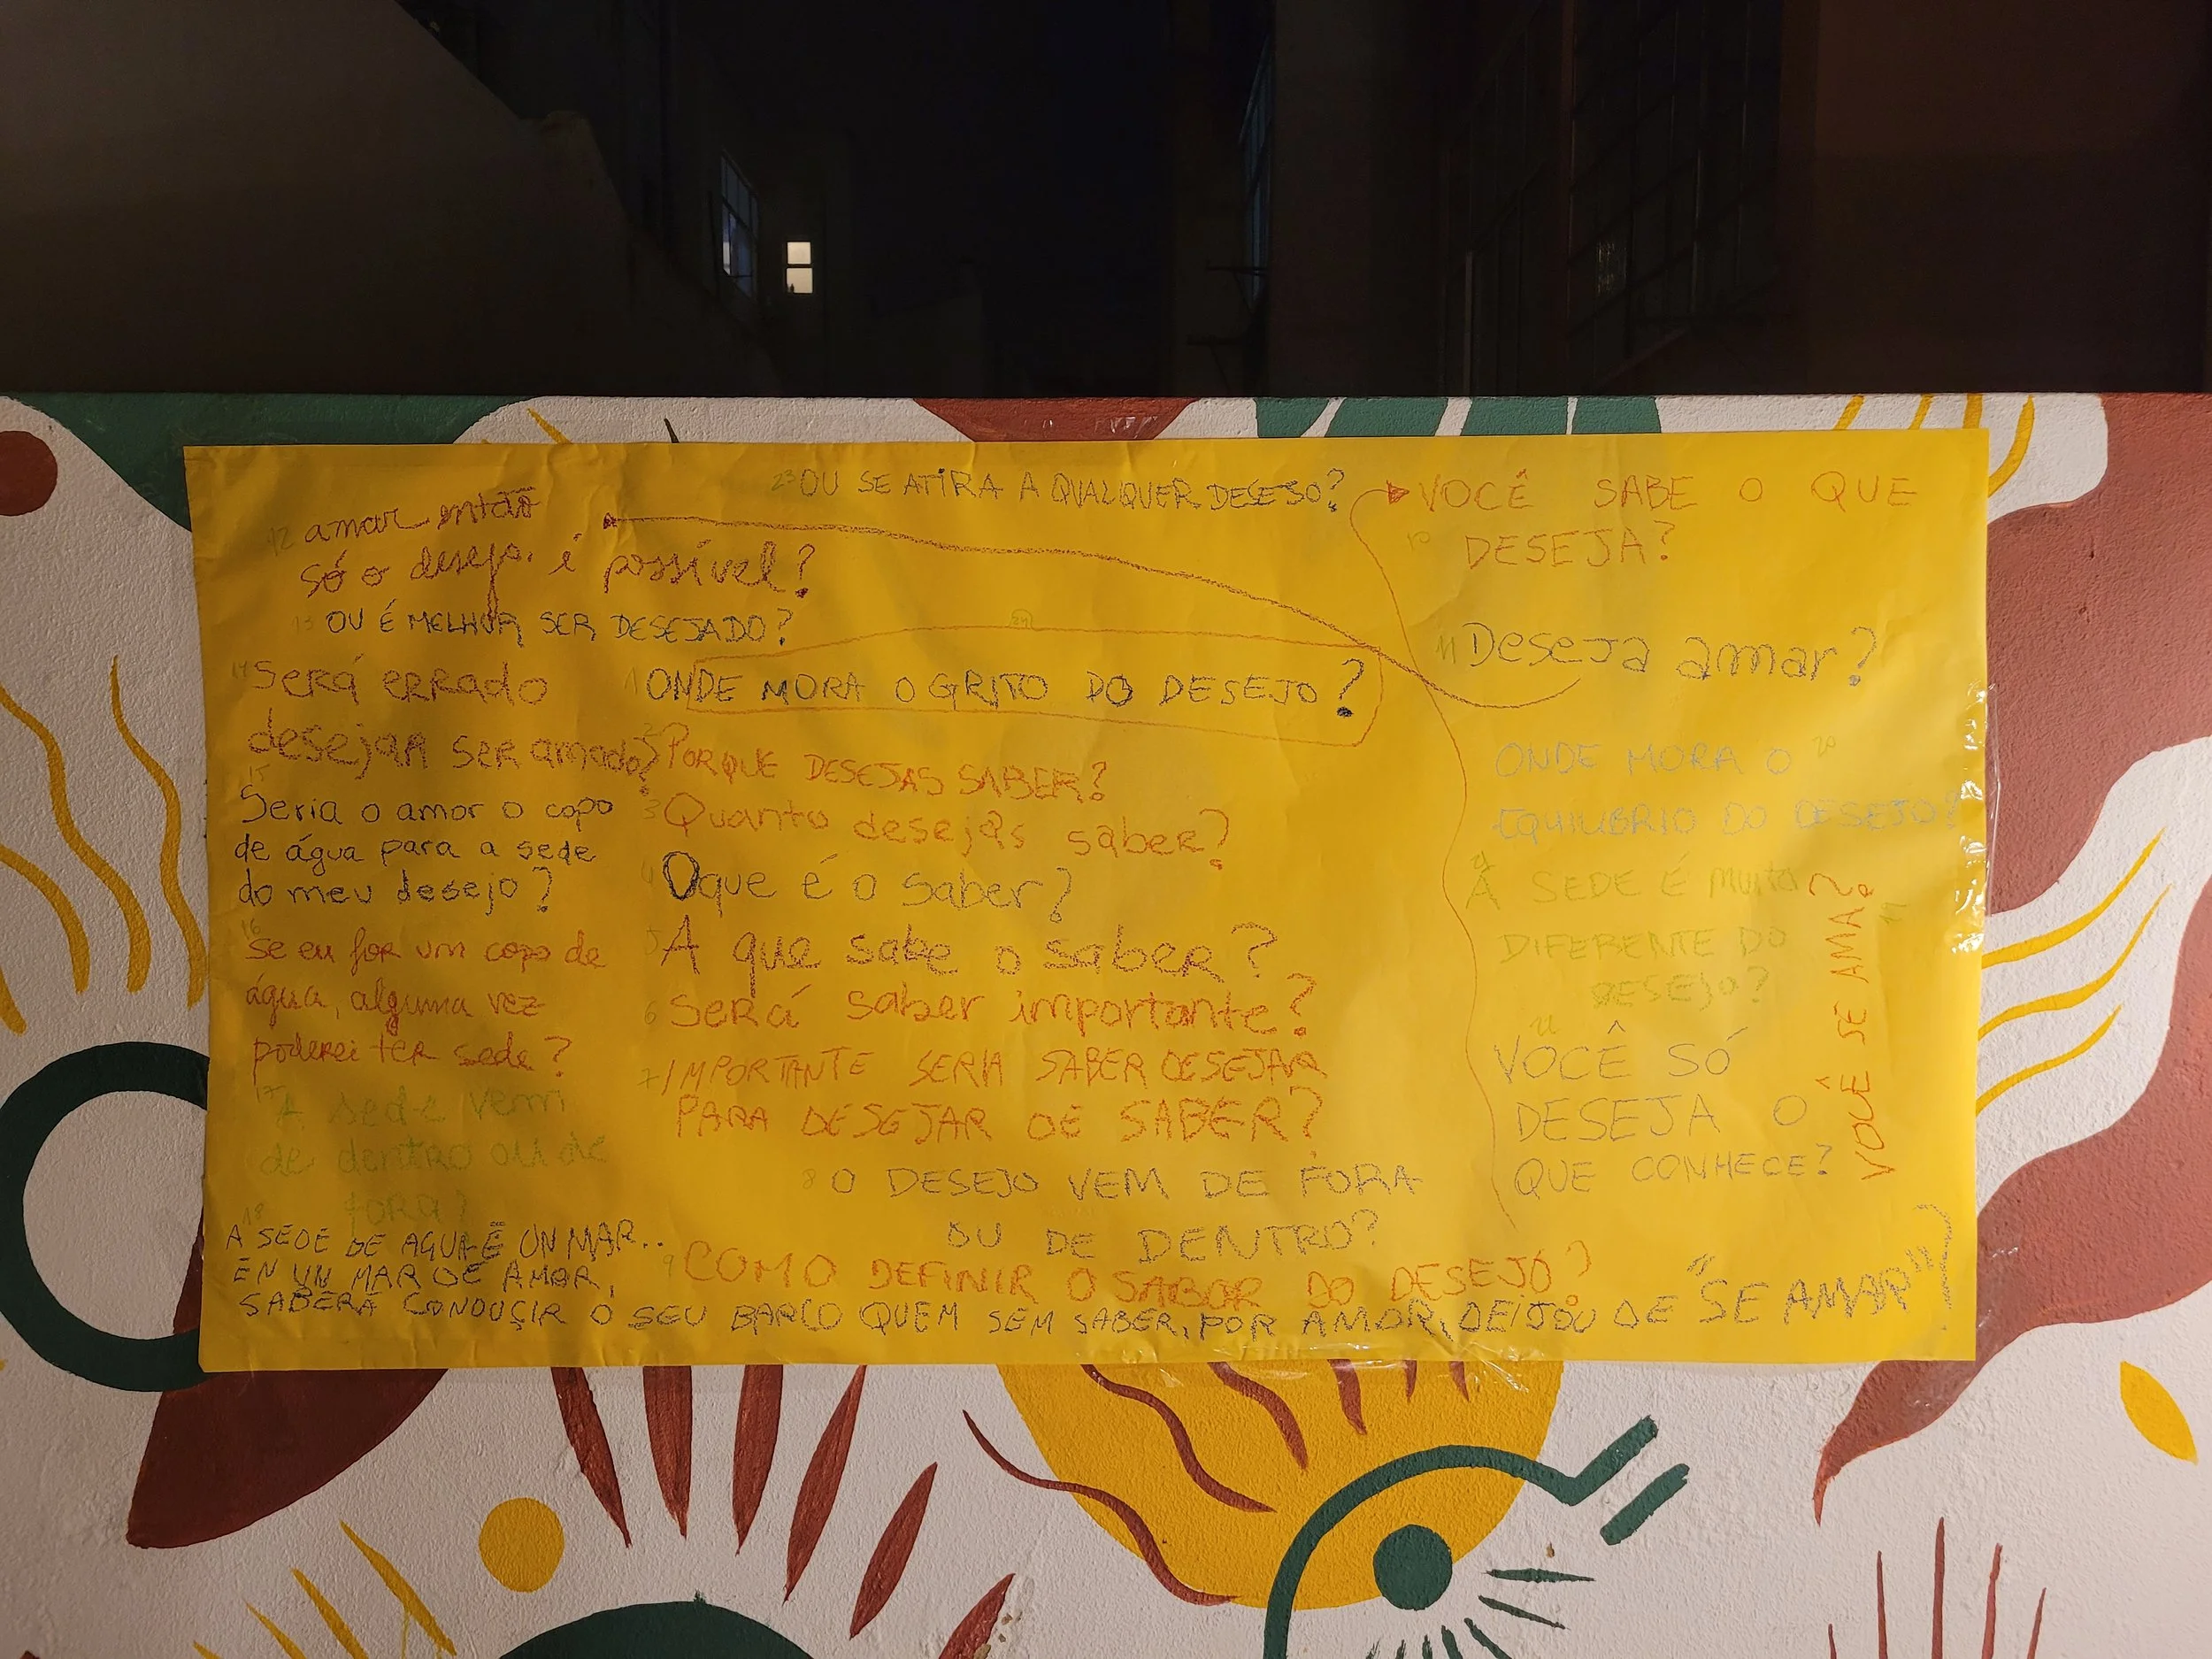 23 OU SE ATIRA A QUALQUER DESEJO?
12 amar então
só o desejo. é possível?
13 OU É MELHOR SER DESEJADO?
14 Será errado
desejar ser amado?
15
Seria o amor o copo
de água para a sede
do meu desejo?
16
Se eu for um copo de
água, alguma vez
poderei ter sede?
17 A sede vem
de dentro ou de
fora?
18
A SEDE DE AGUA É UN MAR..
EN UN MAR DE AMOR,
SABERÁ CONDUÇIR O SEU BARCO QUEM SEM SABER, POR AMOR, DEIJOU DE "SE AMAR"?
24
1 ONDE MORA O GRITO DO DESEJO?
2 PORQUE DESEJAS SABER?
3 Quanto desejas saber?
4 Oque é o saber?
5 A que sabe o saber?
6 Será saber importante?
7 IMPORTANTE SERIA SABER DESEJAR
PARA DESEJAR DE SABER?
8 O DESEJO VEM DE FORA
OU DE DENTRO?
9 COMO DEFINIR O SABOR DO DESEJO?
VOCÊ SABE O QUE
10 DESEJA?
11 Deseja amar?
ONDE MORA O 20
EQUILIBRIO DO DESEJO?
21
A SEDE É muito
DIFERENTE DO
DESEJO?
VOCÊ SÓ
DESEJA O
QUE CONHECE?
VOCÊ SE AMA? 19